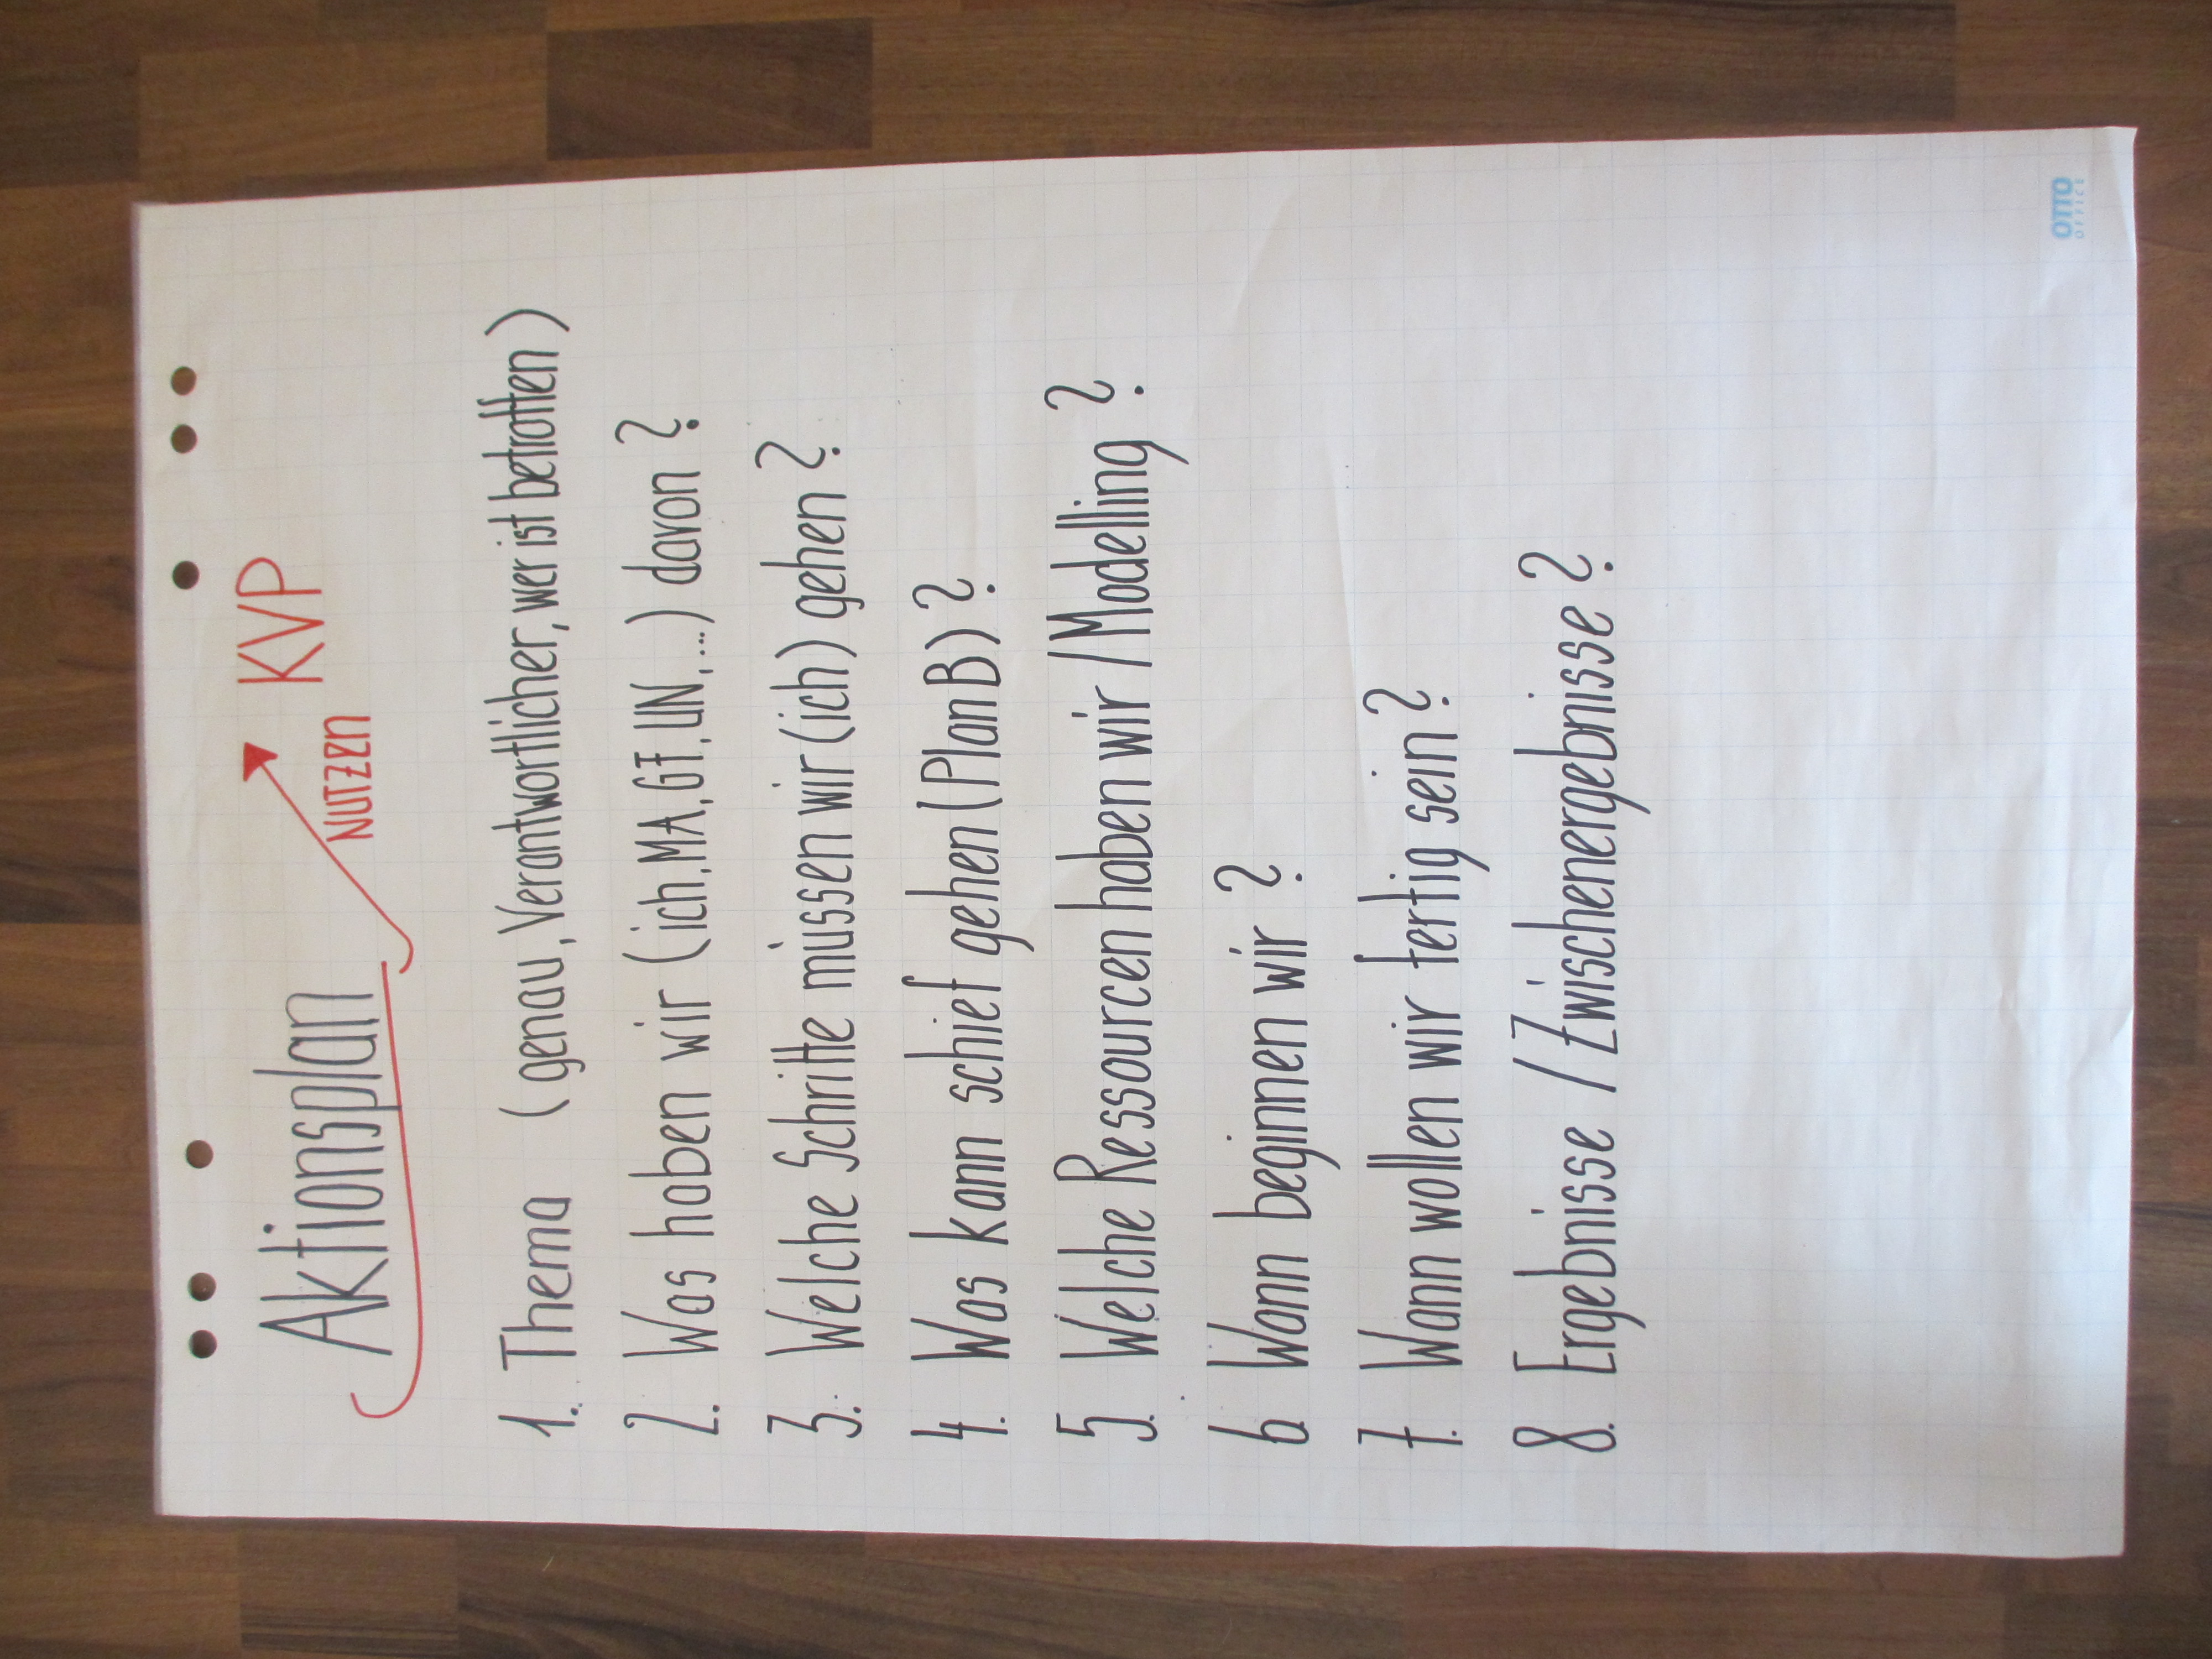 Aktionsplan
KVP
NUTZEN
1. Thema (genau, Verantwortlicher, wer ist betroffen)
2. Was haben wir (ich, MA, GF, UN, ...) davon?
3. Welche Schritte müssen wir (ich) gehen?
4. Was kann schief gehen (Plan B)?
5. Welche Ressourcen haben wir / Modelling?
6 Wann beginnen wir?
7. Wann wollen wir fertig sein?
8. Ergebnisse / Zwischenergebnisse?
OTTO
OFFICE